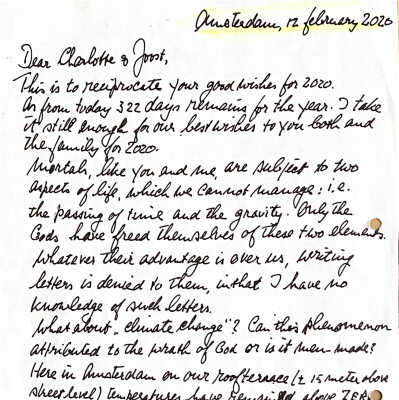 Amsterdam, 12 february 2020
Dear Charlotte & Joost,
This is to reciprocate your good wishes for 2020.
As from today 322 days remains for the year. I take
it still enough for our best wishes to you both and
the family for 2020.
Mortals, like you and me, are subject to two
aspects of life, which we cannot manage: i.e.
the passing of time and the gravity. Only the
Gods have freed themselves of these two elements.
Whatever their advantage is over us, writing
letters is denied to them, in that I have no
knowledge of such letters.
What about „climate change"? Can this phenomenon
attributed to the wrath of God or is it men made?
Here in Amsterdam on our roofterrace (± 15 meter above
street level) temperatures have remained above ZERO